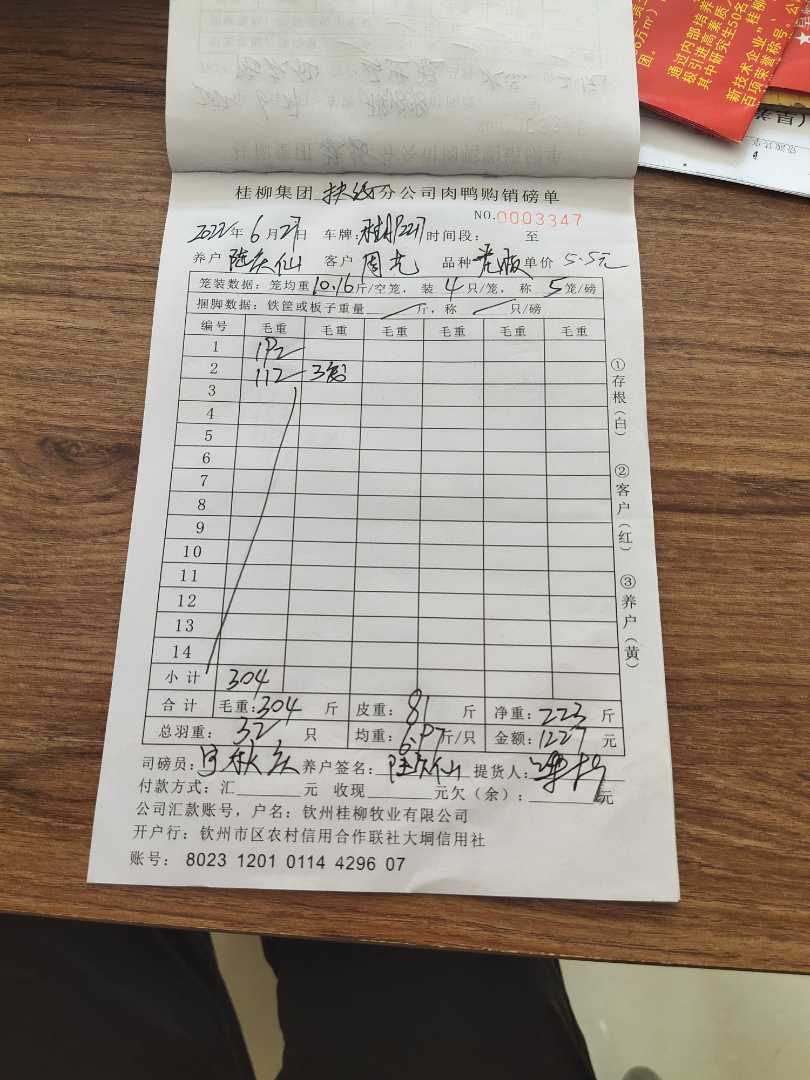 桂柳集团 扶绥 分公司肉鸭购销磅单
NO.0003347
2022年 6月27日 车牌:桂 227 时间段: 至
养户 陆庆仙 客户 周光 品种 单价 5.5元
笼装数据: 笼均重10.16斤/空笼, 装 4 只/笼, 称 5 笼/磅
捆脚数据: 铁筐或板子重量 斤, 称 只/磅
编号 毛重 毛重 毛重 毛重 毛重 毛重
1 192
2 112 3
3
4
5
6
7
8
9
10
11
12
13
14
小计 304
合计 毛重:304 斤 皮重: 81 斤 净重: 223 斤
总羽重: 32 只 均重: 6.97斤/只 金额: 1227 元
司磅员: 养户签名: 陆庆仙 提货人:
付款方式: 汇 元 收现 元欠(余): 元
公司汇款账号, 户名: 钦州桂柳牧业有限公司
开户行: 钦州市区农村信用合作联社大垌信用社
账号: 8023 1201 0114 4296 07
①存根(白)
②客户(红)
③养户(黄)
通过内部培养
级引进高素质人
其中研究生50名
新技术企业”、
百项荣誉称号。公
团。